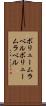 ボリュームラ
ベルボリュー
ムラベル